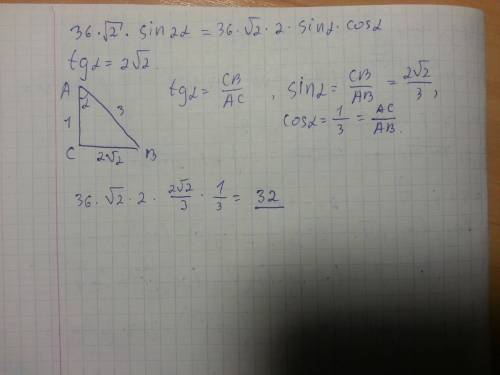 36·√2·sin2α = 36·√2·2·sinα·cosα
tgα = 2√2
A
α
3
1
C
2√2
B
tgα = CB/AC, sinα = CB/AB = 2√2/3;
cosα = 1/3 = AC/AB.
36·√2·2·2√2/3·1/3 = 32